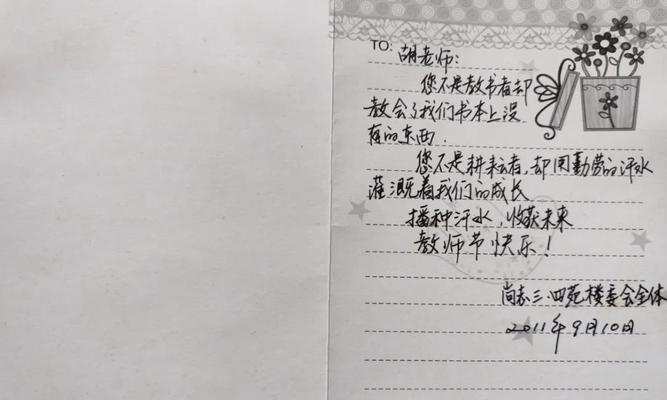 TO: 胡老师:
您不是教书者却
教会了我们书本上没
有的东西.
您不是耕耘者,却用勤劳的汗水
灌溉着我们的成长
播种汗水,收获未来
教师节快乐!
尚志三.四苑楼委会全体
2011年9月10日